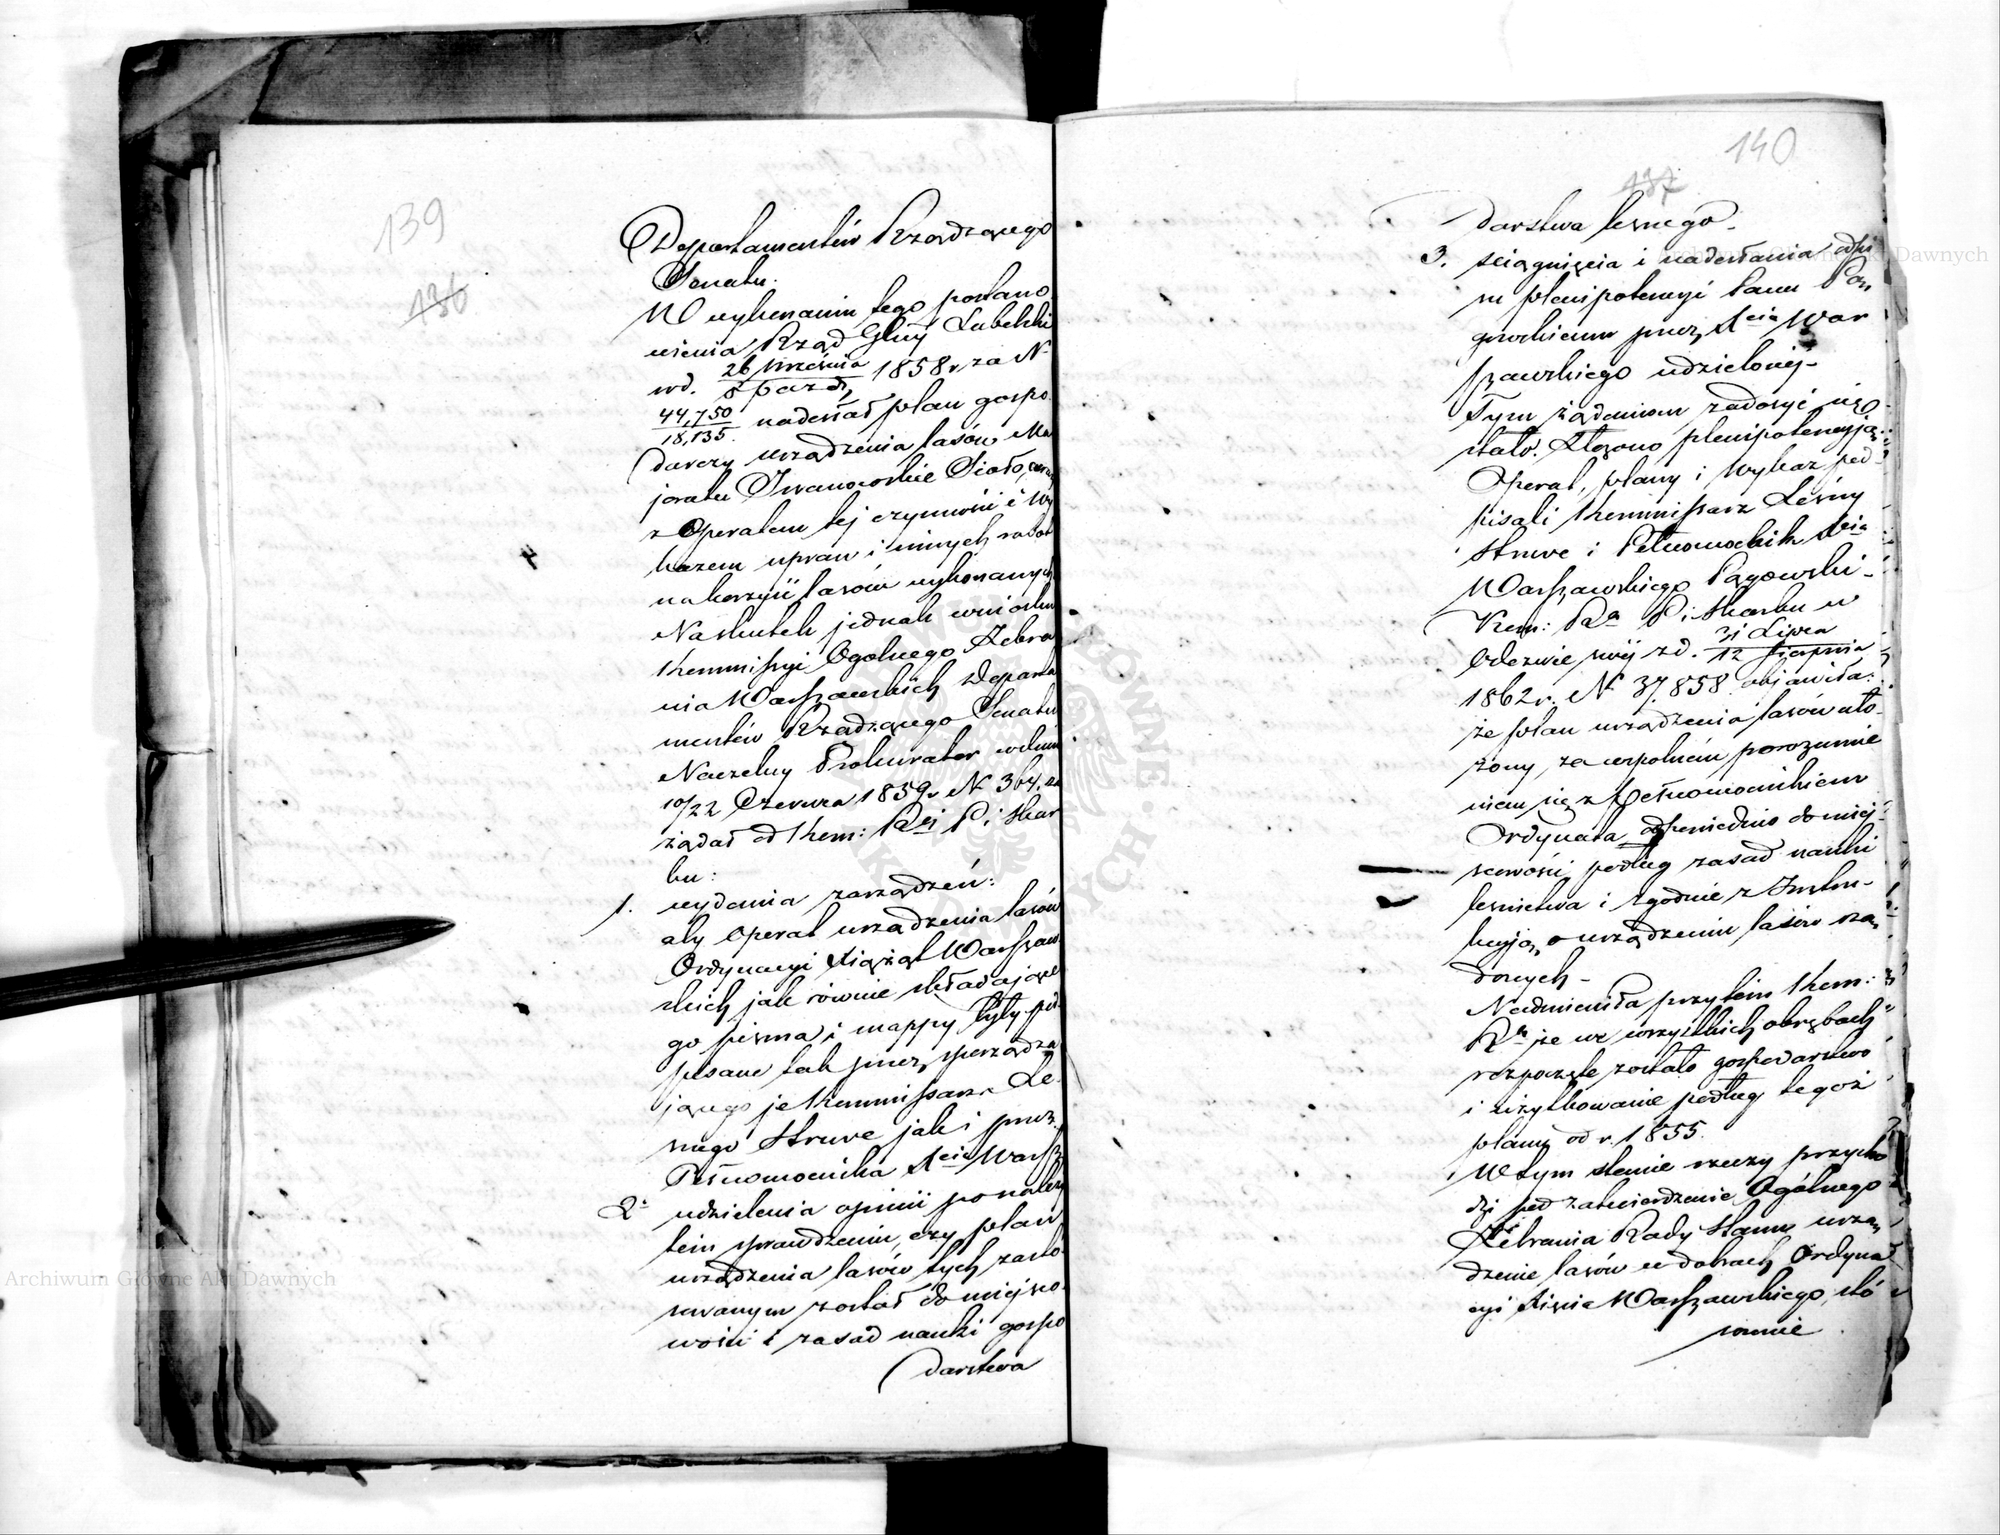 139
136
Departamentów Rządzącego
Senatu.
W wykonaniu tego postano
wienia Rząd Glny Lubelski
pod. 26 Września / 8 Paźdz. 1858 r. za N
44,750 / 18,135. nadesłał plan gospo
darczy urządzenia lasów Ma
joratu Iwanowskie Sioło, wraz
z Operatem tej czynności i Wy
kazem upraw i innych robót
na korzyść lasów wykonanych
Na skutek jednak wniosku
Kommissyi Ogólnego Zebra
nia Warszawskich Departa
mentów Rządzącego Senatu
Naczelny Prokurator w dniu
10/22 Czerwca 1859 r. N 364. za
żądał od Kom: Rej P. i Skar
bu:
1. wydania zarządzeń:
aby Operat urządzenia lasów
Ordynacyi Xiążąt Warszaw
skich jak równie składające
go pisma i mappy były pod
pisane tak przez sporządza
jącego je Kommissarza Le
śnego Struve jak i przez
Pełnomocnika Xcia Warsz.
2. udzielenia opinii po należy
tem sprawdzeniu, czy plan
urządzenia lasów tych zasto
sowanym został do miejsco
wości i zasad nauki gospo
darstwa
140
137
darstwa leśnego.
3. ściągnięcia i nadesłania odpi
su plenipotencyi Panu Pą
gowskiemu przez Xcia War
szawskiego udzielonej.
Tym żądaniom zadosyć się
stało. Złożono plenipotencyją,
Operat, plany i Wykaz pod
pisali Kommissarz Leśny
Struve i Pełnomocnik Xcia
Warszawskiego Pągowski.
Kom: Ra P. i Skarbu w
Odezwie swej z d. 31 Lipca / 12 Sierpnia
1862 r. N 37,858 objawiła:
że plan urządzenia lasów uło
żony, za wspólnem porozumie
niem się z Pełnomocnikiem
Ordynata odpowiednio do miej
scowości, podług zasad nauki
leśnictwa i zgodnie z Instru
kcyją o urządzeniu lasów rzą
dowych.
Nadmieniła przytem Kom:
Ra że we wszystkich obrębach
rozpoczęte zostało gospodarstwo
i użytkowanie podług tegoż
planu od r. 1855.
W tym stanie rzeczy przycho
dzi pod zatwierdzenie Ogólnego
Zebrania Rady Stanu urzą
dzenie lasów w dobrach Ordyna
cyi Xięcia Warszawskiego, sto
sownie